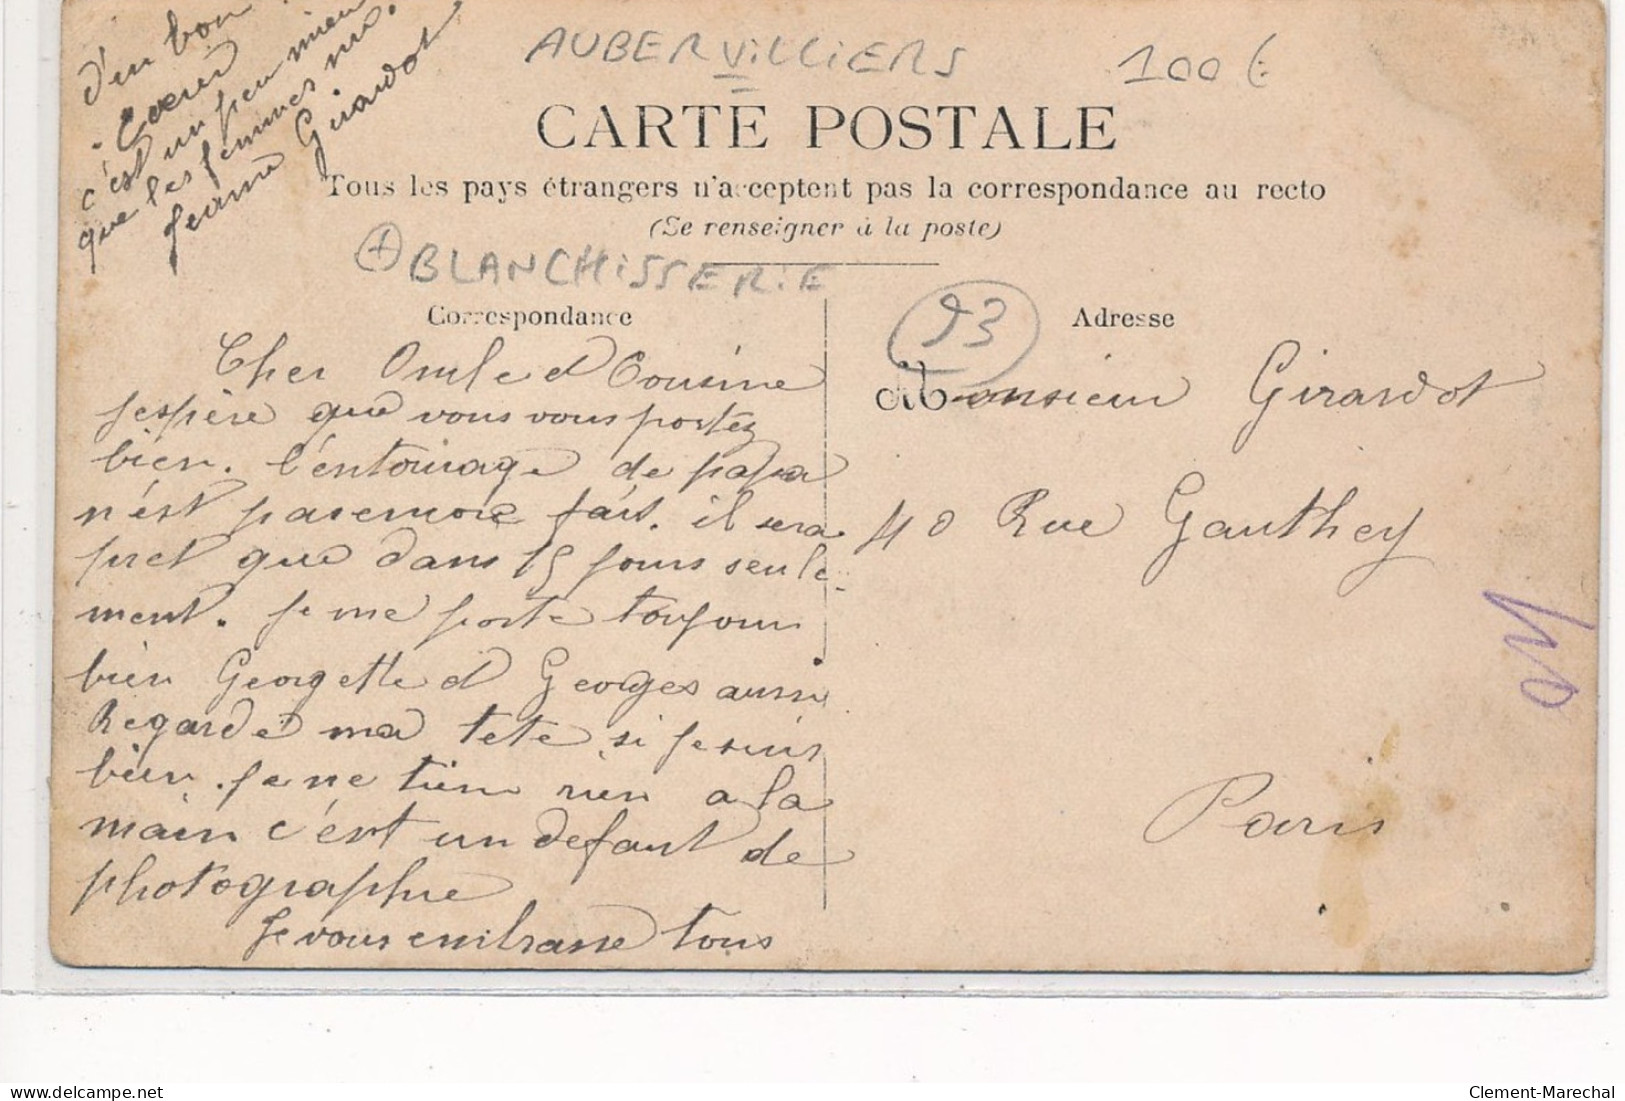 AUBERVILLIERS
100 €
CARTE POSTALE
Tous les pays étrangers n'acceptent pas la correspondance au recto
(Se renseigner à la poste)
+ BLANCHISSERIE
93
Correspondance
Cher Oncle et Cousine
j'espère que vous vous portez
bien. l'entourage de papa
n'est pasencore fait. il sera
pret que dans 15 jours seule-
ment. je me porte toujours
bien Georgette et Georges aussi
Regarde ma tete si je suis
bien. je ne tien rien a la
main c'est un defaut de
photographie
Je vous embrasse tous
d'un bon
Coeur
c'est un peu mieux
que les femmes nu.
Jeanne Girardot
Adresse
Monsieur Girardot
40 Rue Gauthey
Paris
delcampe.net
Clement-Marechal